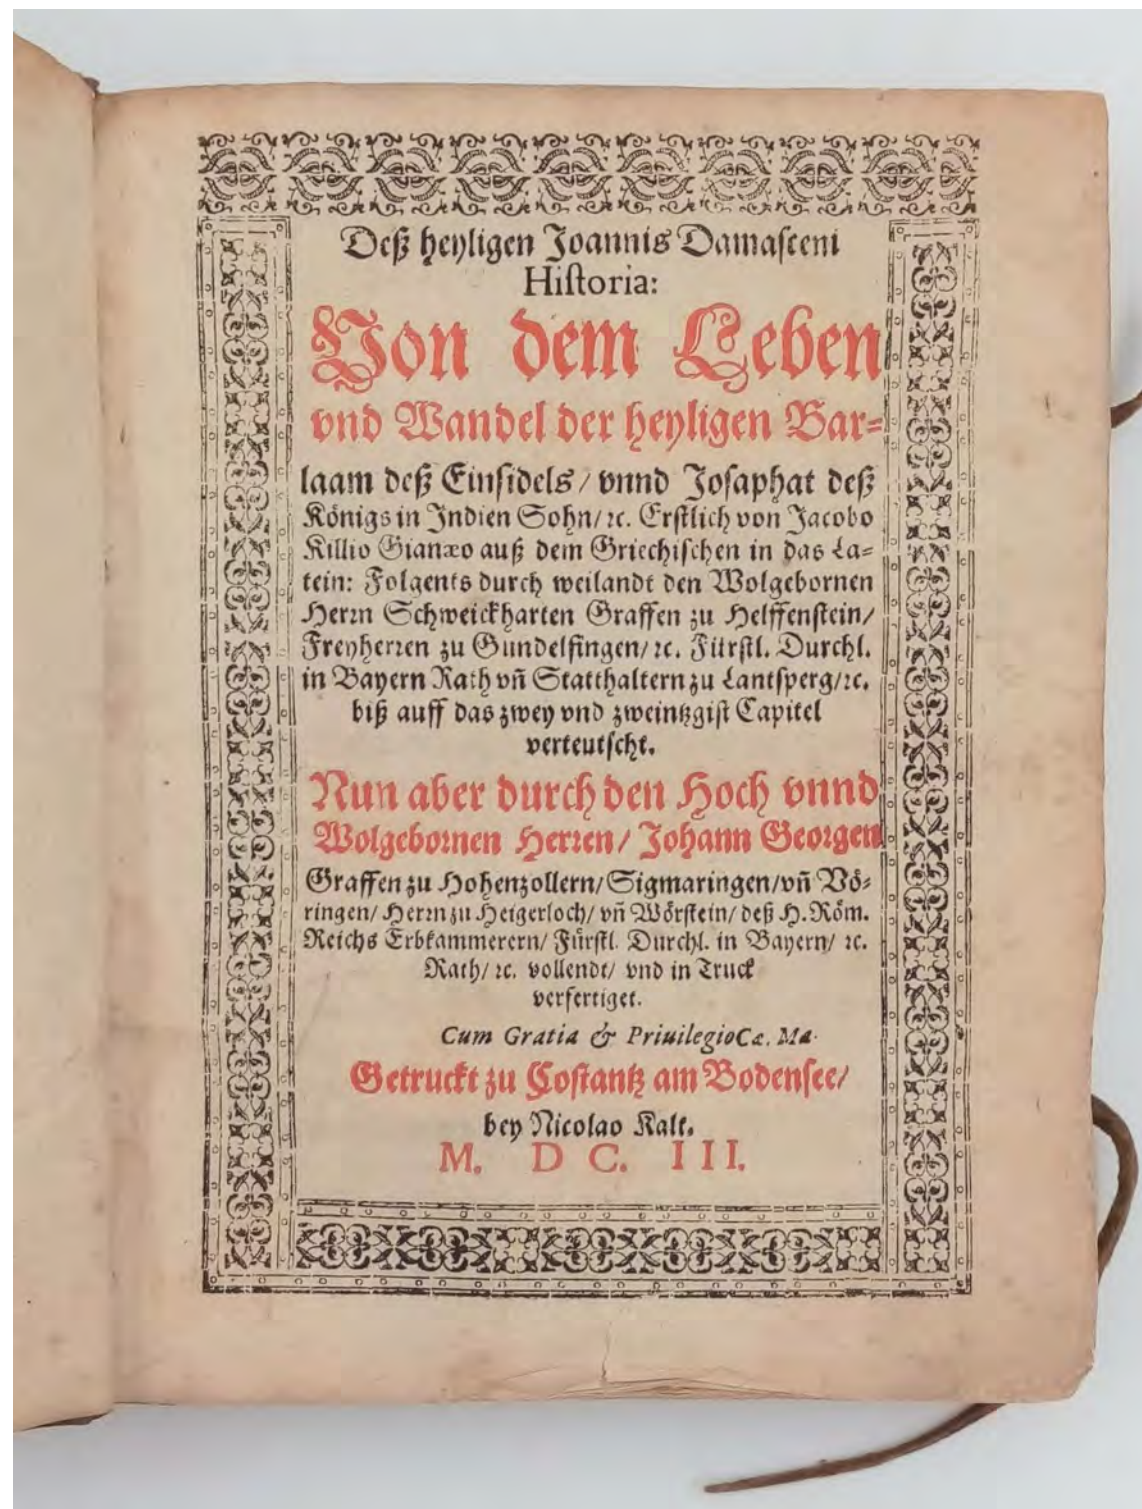 Deß heyligen Joannis Damasceni
Historia:
Von dem Leben
vnd Wandel der heyligen Bar⸗
laam deß Einsidels / vnnd Josaphat deß
Königs in Indien Sohn/ ꝛc. Erstlich von Jacobo
Killio Gianæo auß dem Griechischen in das La⸗
tein: Folgents durch weilandt den Wolgebornen
Herrn Schweickharten Graffen zu Helffenstein/
Freyherren zu Gundelfingen/ ꝛc. Fürstl. Durchl.
in Bayern Rath vñ Statthaltern zu Lantsperg/ꝛc.
biß auff das zwey vnd zweintzgist Capitel
verteutscht.
Nun aber durch den Hoch vnnd
Wolgebornen Herren/ Johann Georgen
Graffen zu Hohenzollern/ Sigmaringen/ vñ Vö⸗
ringen/ Herrn zu Heigerloch/ vñ Wörstein/ deß H. Röm.
Reichs Erbkammerern/ Fürstl. Durchl. in Bayern/ ꝛc.
Rath/ ꝛc. vollendt/ vnd in Truck
verfertiget.
Cum Gratia & Priuilegio Cæ. Ma.
Getruckt zu Costantz am Bodensee/
bey Nicolao Kalt.
M. D C. III.